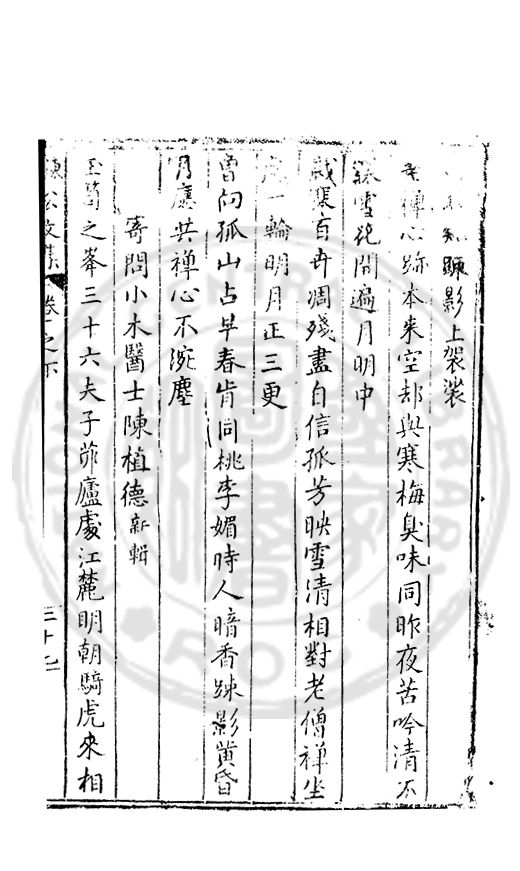 知疎影上袈裟
禪心跡本来空却與寒梅臭味同昨夜苦吟清不
寐雪花開遍月明中
百卉凋殘盡自信孤芳映雪清相對老僧禪坐
一輪明月正三更
曽向孤山占早春肯同桃李媚時人暗香踈影黄昏
月應共禪心不涴塵
寄問小木醫士陳植德新輯
玉笥之峯三十六夫子茆廬處江麓明朝騎虎來相
陳公文集 卷之下
三十七